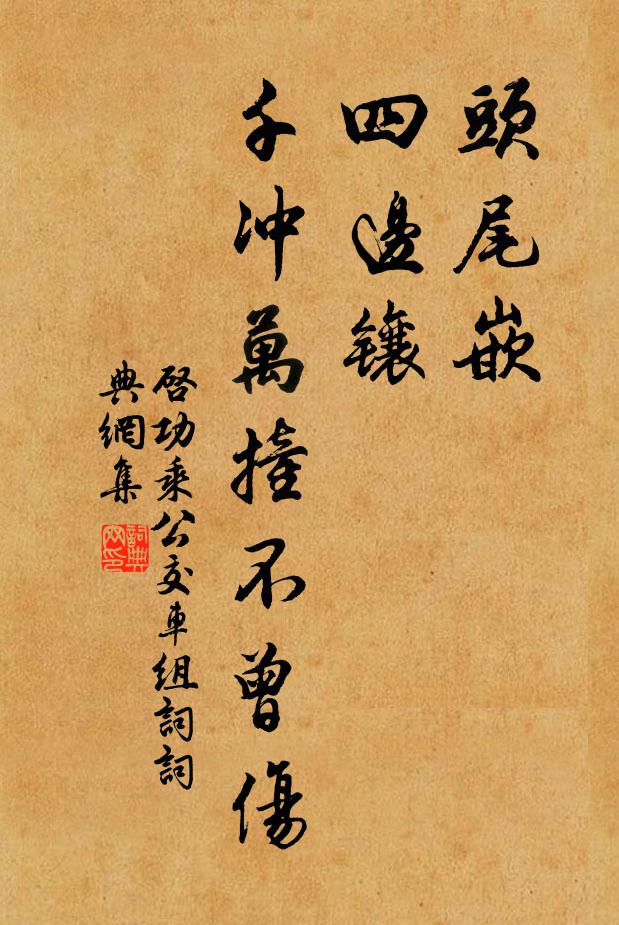 頭尾嵌
四邊鑲
千冲萬撞不曾傷
啓功乘公交車組詞詞
典網集
詞典
网印